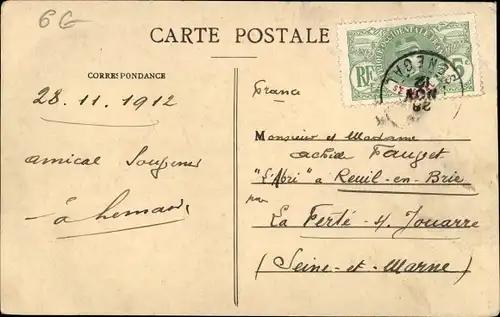 6G
CARTE POSTALE
CORRESPONDANCE
28.11.1912
amical Souvenir
France
Monsieur et Madame
Achille Fauget
"L'Abri" à Reuil-en-Brie
par
La Ferté s/ Jouarre
(Seine-et-Marne)
RF
SENEGAL
28
NOV
12